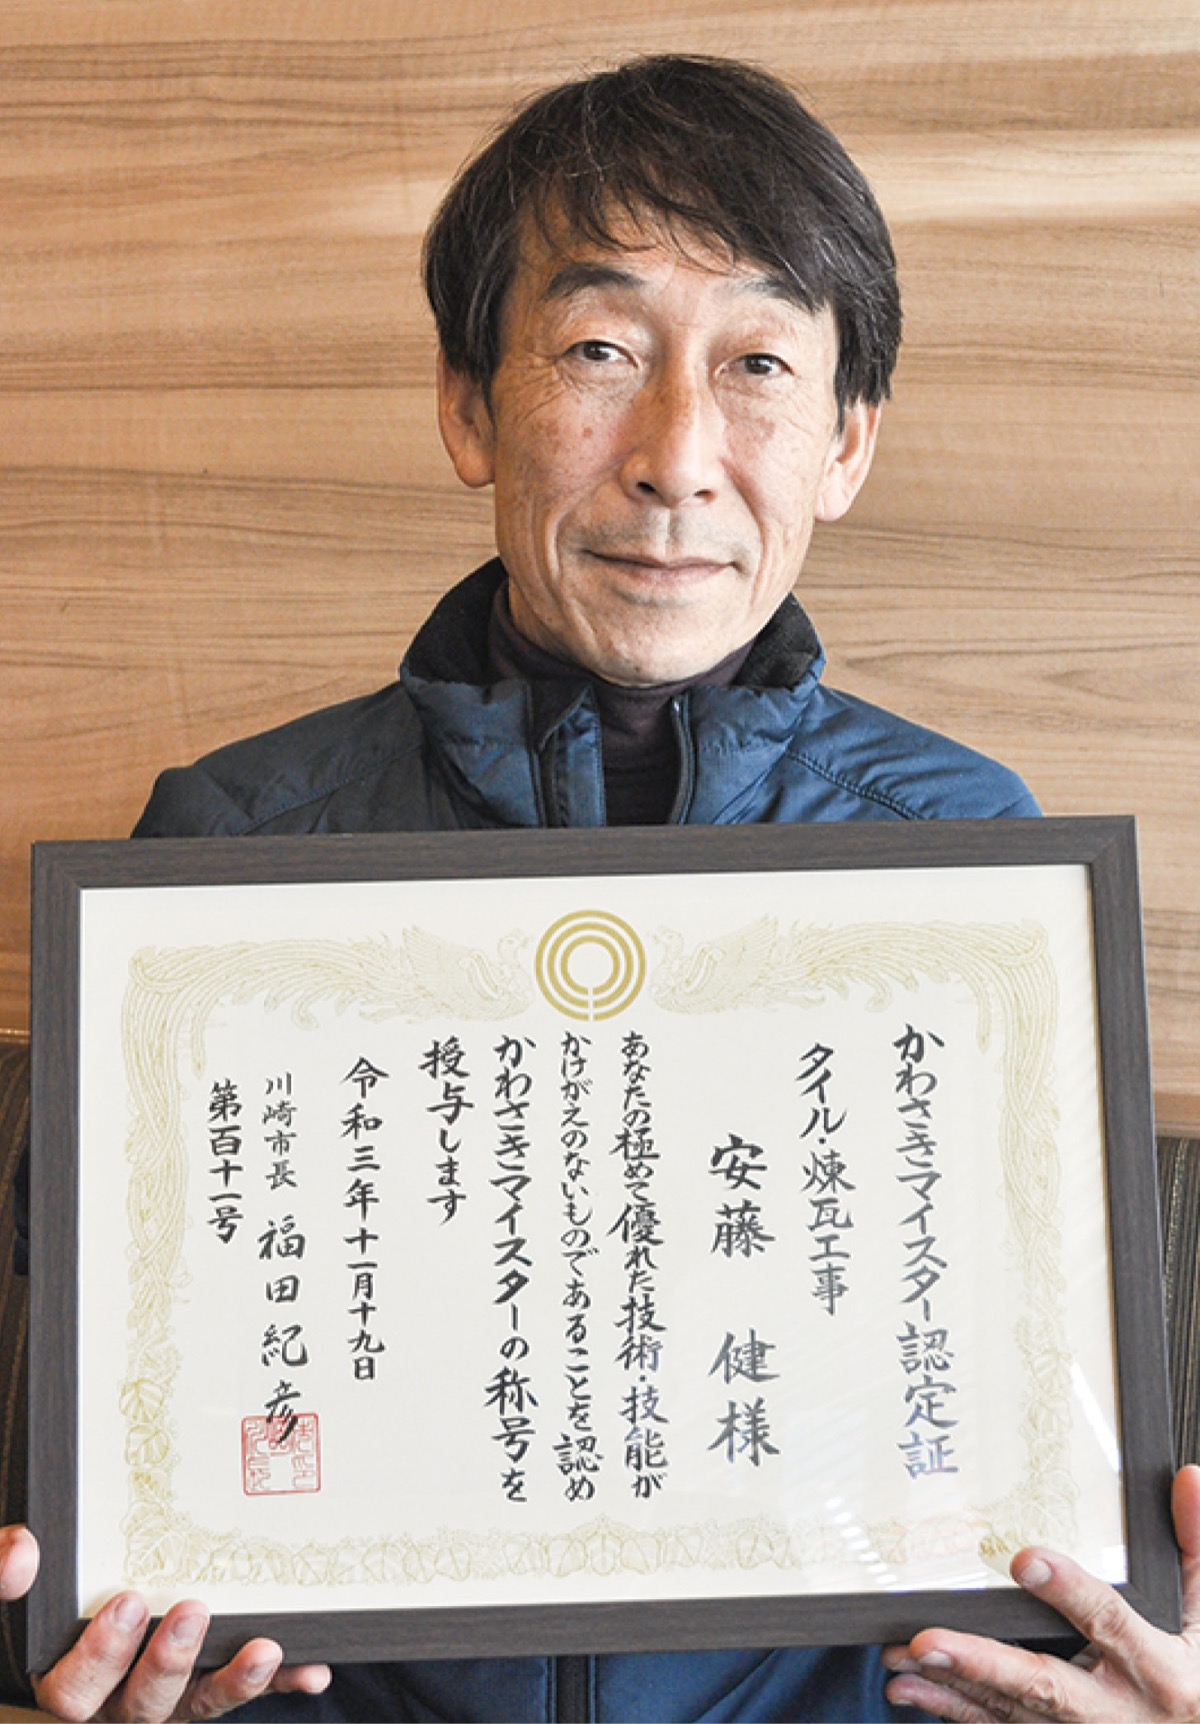 かわさきマイスター認定証
タイル・煉瓦工事
安藤 健様
あなたの極めて優れた技術・技能が
かけがえのないものであることを認め
かわさきマイスターの称号を
授与します
令和三年十一月十九日
川崎市長 福田紀彦
第百十一号